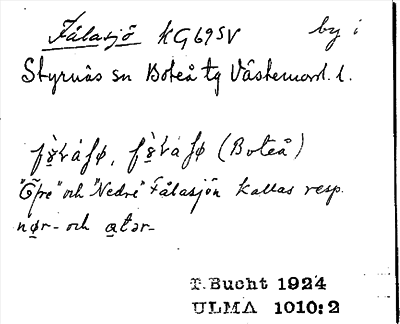 Fålasjö KG69SV by i
Styrnäs sn Boteå tg Västernorrl. l.
(Boteå)
"Öfre" och "Nedre" Fålasjön kallas resp.
nør- och
T.Bucht 1924
ULMA 1010:2